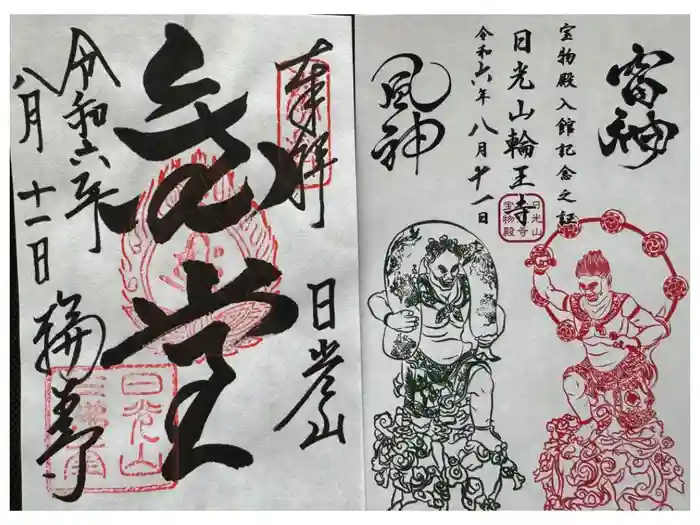 雷神
宝物殿入館記念之証
日光山輪王寺
令和六年八月十一日
風神
日光山
宝物殿
奉拝
日光山
堂
令和六年
八月十一日
輪王寺
日光山